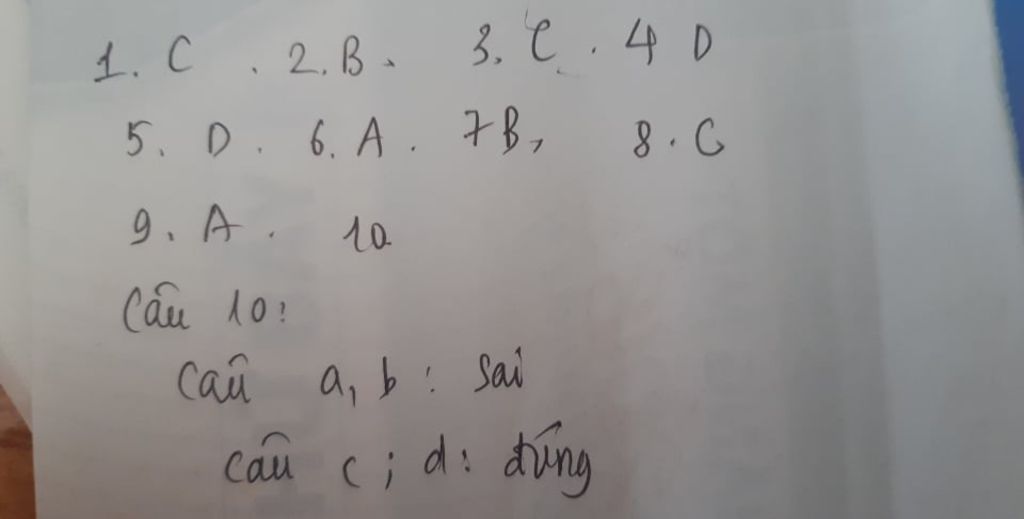 1. C . 2. B. 3. C. 4 D
5. D. 6. A. 7 B, 8. C
9. A. 10.
Câu 10:
Câu a, b: sai
Câu c; d: đúng